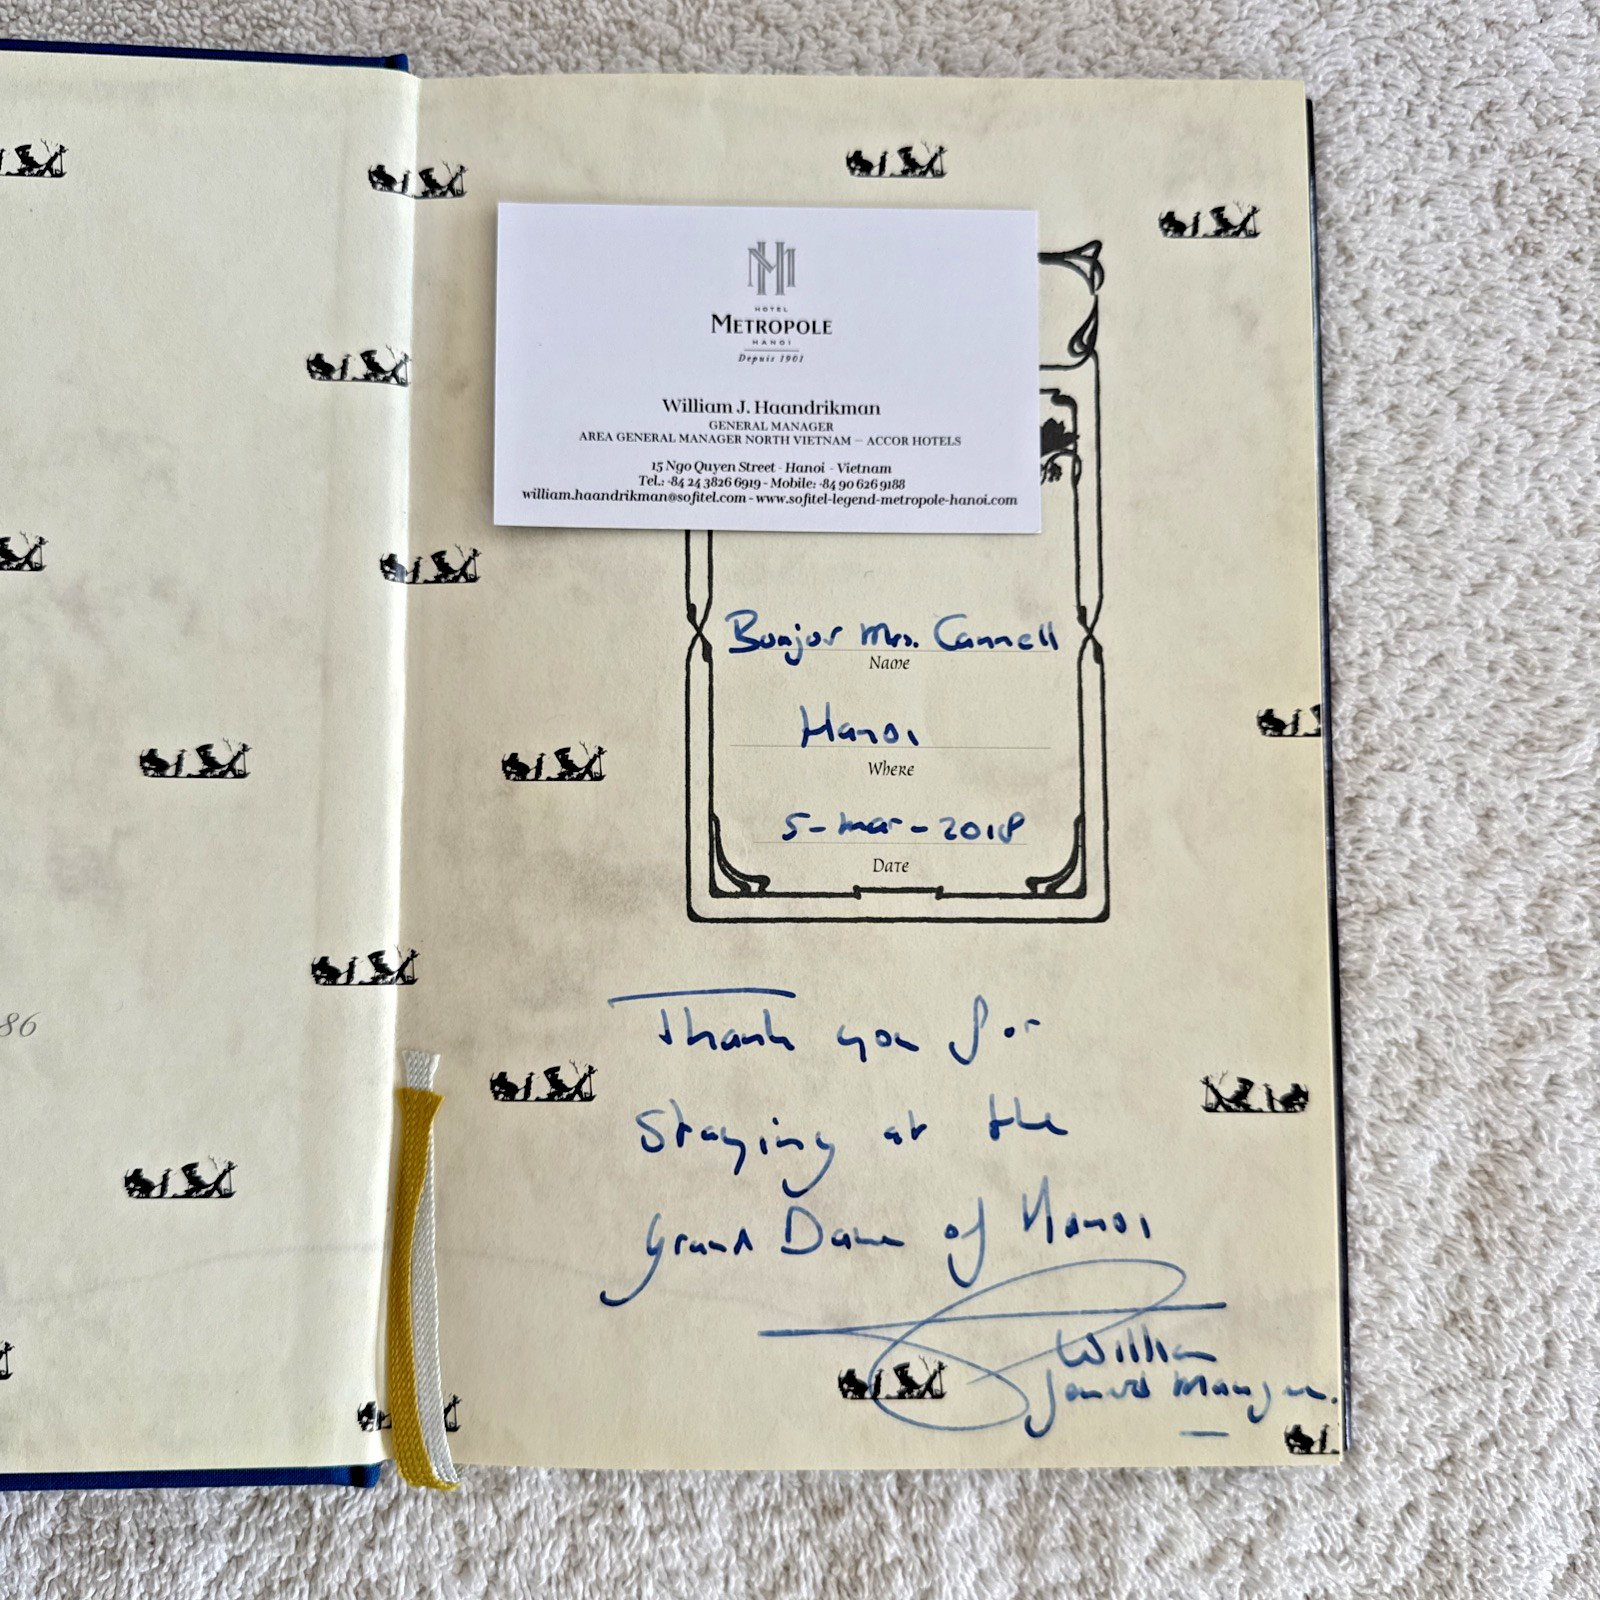 HOTEL
METROPOLE
HANOI
Depuis 1901
William J. Haandrikman
GENERAL MANAGER
AREA GENERAL MANAGER NORTH VIETNAM – ACCOR HOTELS
15 Ngo Quyen Street - Hanoi - Vietnam
Tel.: +84 24 3826 6919 - Mobile: +84 90 626 9188
william.haandrikman@sofitel.com - www.sofitel-legend-metropole-hanoi.com
Bonjor Mrs. Cannell
Name
Hanoi
Where
5-mar-2018
Date
Thank you for
Staying at the
Grand Dame of Hanoi
William
General Manager.
86